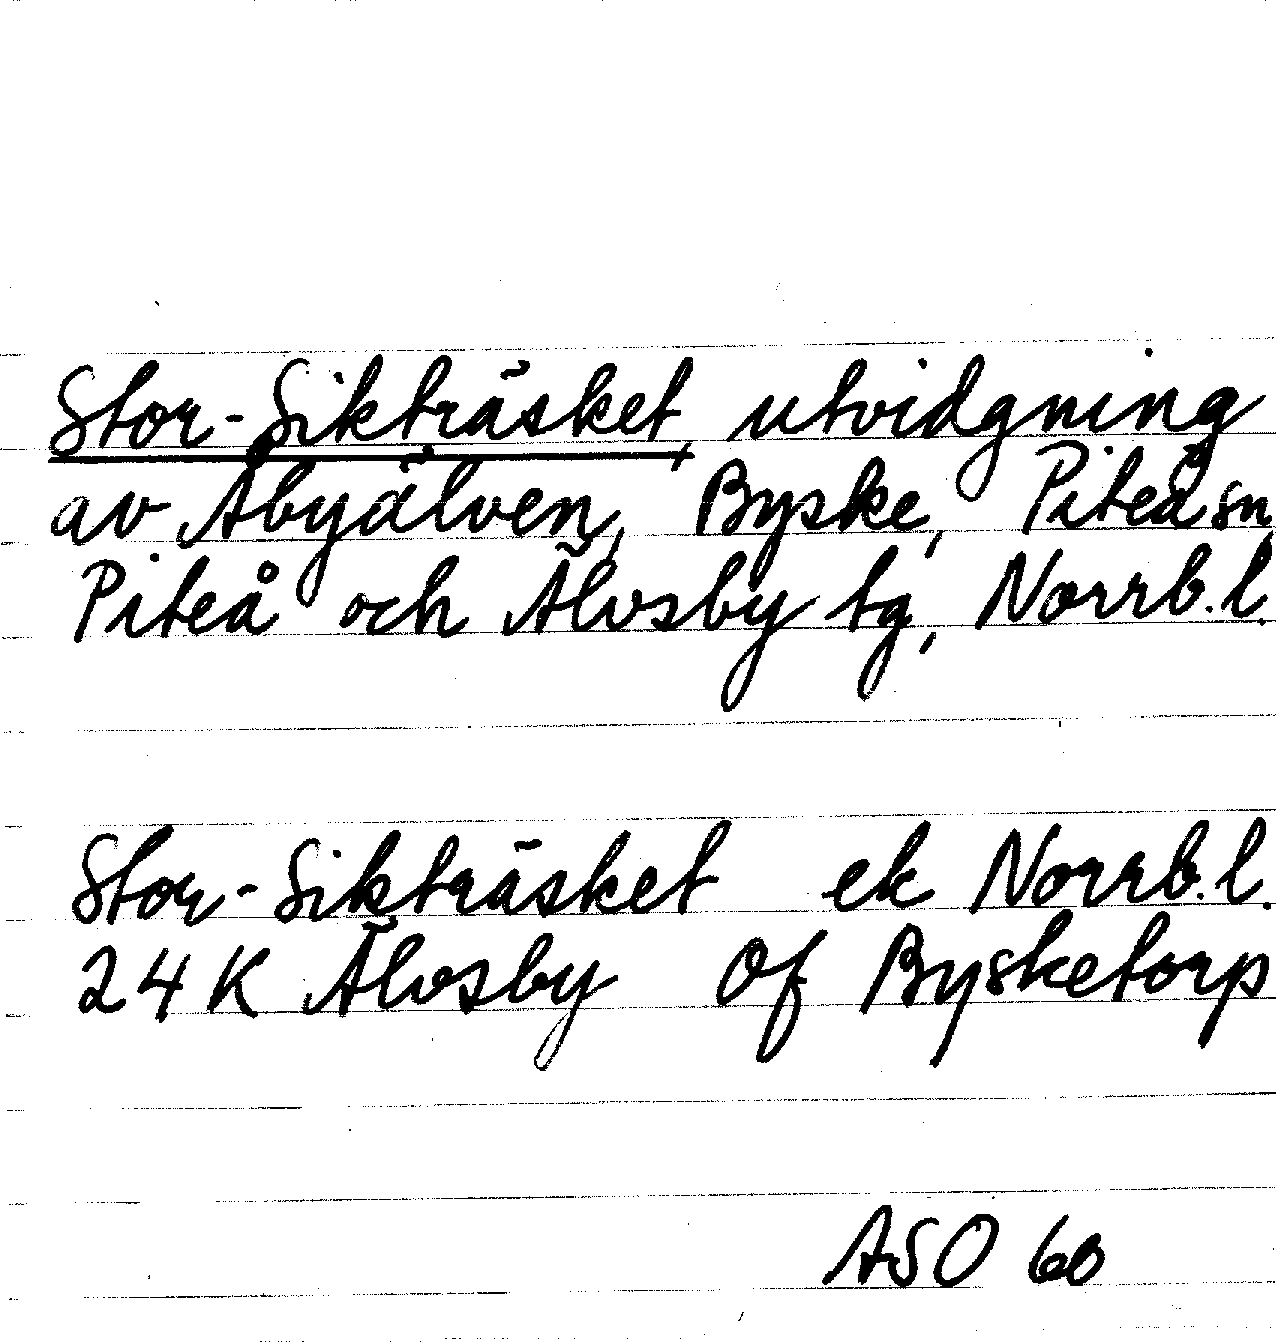 Stor-Sikträsket, utvidgning
av Åbyälven, Byske, Piteå sn,
Piteå och Älvsby tg, Norrb.l.
Stor-Sikträsket ek Norrb.l.
24K Älvsby Of Bysketorp
ASO 60